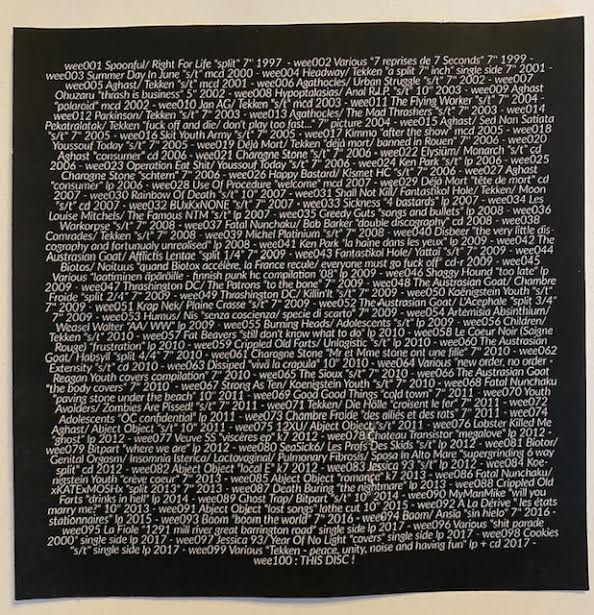 wee001 Spoonful/ Right For Life "split" 7" 1997 - wee002 Various "7 reprises de 7 Seconds" 7" 1999 -
wee003 Summer Day In June "s/t" mcd 2000 - wee004 Headway/ Tekken "a split 7" inch" single side 7" 2001 -
wee005 Aghast/ Tekken "s/t" mcd 2001 - wee006 Agathocles/ Urban Struggle "s/t" 7" 2002 - wee007
Ohuzaru "thrash is business" 5" 2002 - wee008 Hypoptalasias/ Anal R.I.P. "s/t" 10" 2003 - wee009 Aghast
"polaroid" mcd 2002 - wee010 Jan AG/ Tekken "s/t" mcd 2003 - wee011 The Flying Worker "s/t" 7" 2004 -
wee012 Parkinson/ Tekken "s/t" 7" 2003 - wee013 Agathocles/ The Mad Thrashers "s/t" 7" 2003 - wee014
Pekatralatak/ Tekken "fuck off and die/ don't play too fast..." 7" picture 2004 - wee015 Aghast/ Sed Non Satiata
"s/t" 7" 2005 - wee016 Skit Youth Army "s/t" 7" 2005 - wee017 Kimmo "after the show" mcd 2005 - wee018
Youssouf Today "s/t" 7" 2005 - wee019 Déjà Mort/ Tekken "déjà mort/ banned in Rouen" 7" 2006 - wee020
Aghast "consumer" cd 2006 - wee021 Charogne Stone "s/t" 7" 2006 - wee022 Elysium/ Monarch "s/t" cd
2006 - wee023 Operation Eat Shit/ Youssouf Today "s/t" 7" 2006 - wee024 Ken Park "s/t" lp 2006 - wee025
Charogne Stone "schtern" 7" 2006 - wee026 Happy Bastard/ Kismet HC "s/t" 7" 2006 - wee027 Aghast
"consumer" lp 2006 - wee028 Use Of Procedure "welcome" mcd 2007 - wee029 Déjà Mort "tête de mort" cd
2007 - wee030 Rainbow Of Death "s/t" 10" 2007 - wee031 Shall Not Kill/ Fantastikol Hole/ Tekken/ Moon
"s/t" cd 2007 - wee032 BUxKxNONE "s/t" 7" 2007 - wee033 Sickness "4 bastards" lp 2007 - wee034 Les
Louise Mitchels/ The Famous NTM "s/t" lp 2007 - wee035 Greedy Guts "songs and bullets" lp 2008 - wee036
Warkorpse "s/t" 7" 2008 - wee037 Fatal Nunchaku/ Bob Barker "double discography" cd 2008 - wee038
Comrades/ Tekken "s/t" 7" 2008 - wee039 Michel Platinium "s/t" 7" 2008 - wee040 Disbeer "the very little dis-
cography and fortunualy unrealised" lp 2008 - wee041 Ken Park "la haine dans les yeux" lp 2009 - wee042 The
Austrasian Goat/ Afflictis Lentae "split 1/4" 7" 2009 - wee043 Fantastikol Hole/ Yattai "s/t" 7" 2009 - wee044
Biotos/ Noitaus "quand Biotox accélère, la France recule/ everyone must go fuck off" cd-r 2009 - wee045
Various "laatiminen äpäröille - finnish punk hc compilation '08" lp 2009 - wee046 Shaggy Hound "too late" lp
2009 - wee047 Thrashington DC/ The Patrons "to the bone" 7" 2009 - wee048 The Austrasian Goat/ Chambre
Froide "split 2/4" 7" 2009 - wee049 Thrashington DC/ Killin'It "s/t" 7" 2009 - wee050 Koenigstein Youth "s/t"
7" 2009 - wee051 Krap Nek/ Plaine Crasse "s/t" 7" 2009 - wee052 The Austrasian Goat/ L'Acephale "split 3/4"
7" 2009 - wee053 Humus/ Nis "senza coscienza/ specie di scarto" 7" 2009 - wee054 Artemisia Absinthium/
Weasel Walter "AA/ WW" lp 2009 - wee055 Burning Heads/ Adolescents "s/t" lp 2009 - wee056 Children/
Tekken "s/t" 2010 - wee057 Fat Beavers "still don't know what to do" lp 2010 - wee058 Le Coeur Noir (Saigne
Rouge) "frustration" lp 2010 - wee059 Crippled Old Farts/ Unlogistic "s/t" lp 2010 - wee060 The Austrasian
Goat/ Habsyll "split 4/4" 7" 2010 - wee061 Charogne Stone "Mr et Mme stone ont une fille" 7" 2010 - wee062
Extensity "s/t" cd 2010 - wee063 Dissiped "wilł la crapula" 10" 2010 - wee064 Various "raw order, no order -
Reagan Youth covers compilation" 7" 2010 - wee065 The Sioux "s/t" 7" 2010 - wee066 The Austrasian Goat
"the body covers" 7" 2010 - wee067 Strong As Ten/ Koenigstein Youth "s/t" 7" 2010 - wee068 Fatal Nunchaku
"paving stone under the beach" 10" 2011 - wee069 Good Good Things "cold town" 7" 2011 - wee070 Youth
Avoiders/ Zombies Are Pissed! "s/t" 7" 2011 - wee071 Tekken/ Die Hölle "croissent le fer" 7" 2011 - wee072
Adolescents "OC confidential" lp 2011 - wee073 Chambre Froide "des alliés et des rats" 7" 2011 - wee074
Aghast/ Abject Object "s/t" 10" 2011 - wee075 12XU/ Abject Object "s/t" 7" 2011 - wee076 Lobster Killed Me
"ghost" lp 2012 - wee077 Veuve SS "viscères ep" k7 2012 - wee078 Chateau Transistor "megalove" lp 2012 -
wee079 Bitpart "where we are" lp 2012 - wee080 SeaSick6/ Les Profs Des Skids "s/t" lp 2012 - wee081 Biotor/
Genital Orgasm/ Insomnia Isterica/ Lactovaginal/ Pulmonary Fibrosis/ Sposa In Alto Mare "supergrinding 6 way
split" cd 2012 - wee082 Abject Object "local E" k7 2012 - wee083 Jessica 93 "s/t" lp 2012 - wee084 Koe
nigstein Youth "crève coeur" 7" 2013 - wee085 Abject Object "romance" k7 2013 - wee086 Fatal Nunchaku/
xKATExMOSHx "split 2013" 7" 2013 - wee087 Death Buring "the nightmare" lp 2013 - wee088 Crippled Old
Farts "drinks in hell" lp 2014 - wee089 Ghost Trap/ Bitpart "s/t" 10" 2014 - wee090 MyManMike "will you
marry me?" 10" 2013 - wee091 Abject Object "lost songs" lathe cut 10" 2015 - wee092 A La Dérive "les états
stationnaires" lp 2015 - wee093 Boom "boom the world" 7" 2016 - wee094 Boom/ Arnia "sin hielo" 7" 2016 -
wee095 La Fiole "1291 mill river great barrington road" single side lp 2017 - wee096 Various "shit parade
2000" single side lp 2017 - wee097 Jessica 93/ Year Of No Light "covers" single side lp 2017 - wee098 Cookies
"s/t" single side lp 2017 - wee099 Various "Tekken - peace, unity, noise and having fun" lp + cd 2017 -
wee100 : THIS DISC !